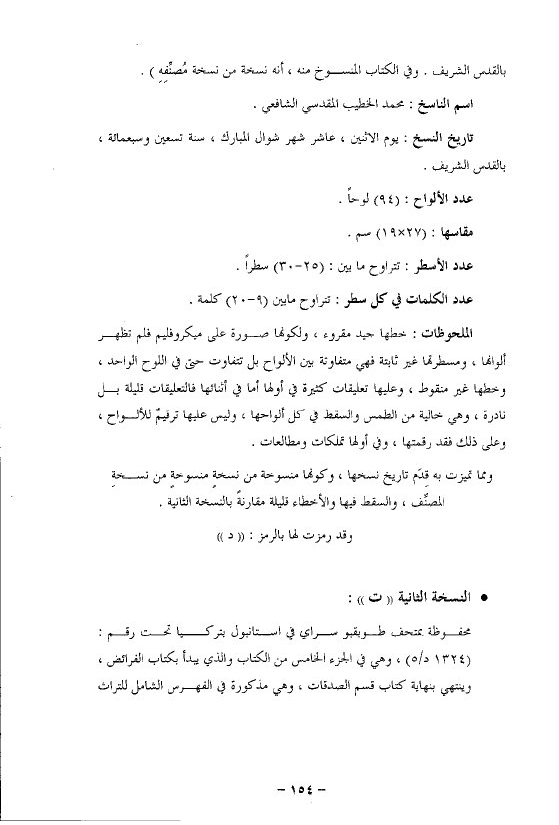 بالقدس الشريف . وفي الكتاب المنسوخ منه ، أنه نسخة من نسخة مُصنِّفِهِ ) .
اسم الناسخ : محمد الخطيب المقدسي الشافعي .
تاريخ النسخ : يوم الاثنين ، عاشر شهر شوال المبارك ، سنة تسعين وسبعمائة ،
بالقدس الشريف .
عدد الألواح : (٩٤) لوحاً .
مقاسها : (٢٧×١٩) سم .
عدد الأسطر : تتراوح ما بين : (٢٥-٣٠) سطراً .
عدد الكلمات في كل سطر : تتراوح مابين (٩-٢٠) كلمة .
الملحوظات : خطها جيد مقروء ، ولكونها صورة على ميكروفليم فلم تظهر
ألوانها ، ومسطرتها غير ثابتة فهي متفاوتة بين الألواح بل تتفاوت حتى في اللوح الواحد ،
وخطها غير منقوط ، وعليها تعليقات كثيرة في أولها أما في أثنائها فالتعليقات قليلة بل
نادرة ، وهي خالية من الطمس والسقط في كل ألواحها ، وليس عليها ترقيمٌ للألواح ،
وعلى ذلك فقد رقمتها ، وفي أولها تملكات ومطالعات .
ومما تميزت به قِدَم تاريخ نسخها ، وكونها منسوخة من نسخةٍ منسوخةٍ من نسخةِ
المصنِّف ، والسقط فيها والأخطاء قليلة مقارنةً بالنسخة الثانية .
وقد رمزت لها بالرمز : (( د ))
• النسخة الثانية (( ت )) :
محفوظة بمتحف طوبقبو سراي في استانبول بتركيا تحت رقم :
(١٣٢٤ د/٥) ، وهي في الجزء الخامس من الكتاب والذي يبدأ بكتاب الفرائض ،
وينتهي بنهاية كتاب قسم الصدقات ، وهي مذكورة في الفهرس الشامل للتراث
- ١٥٤ -